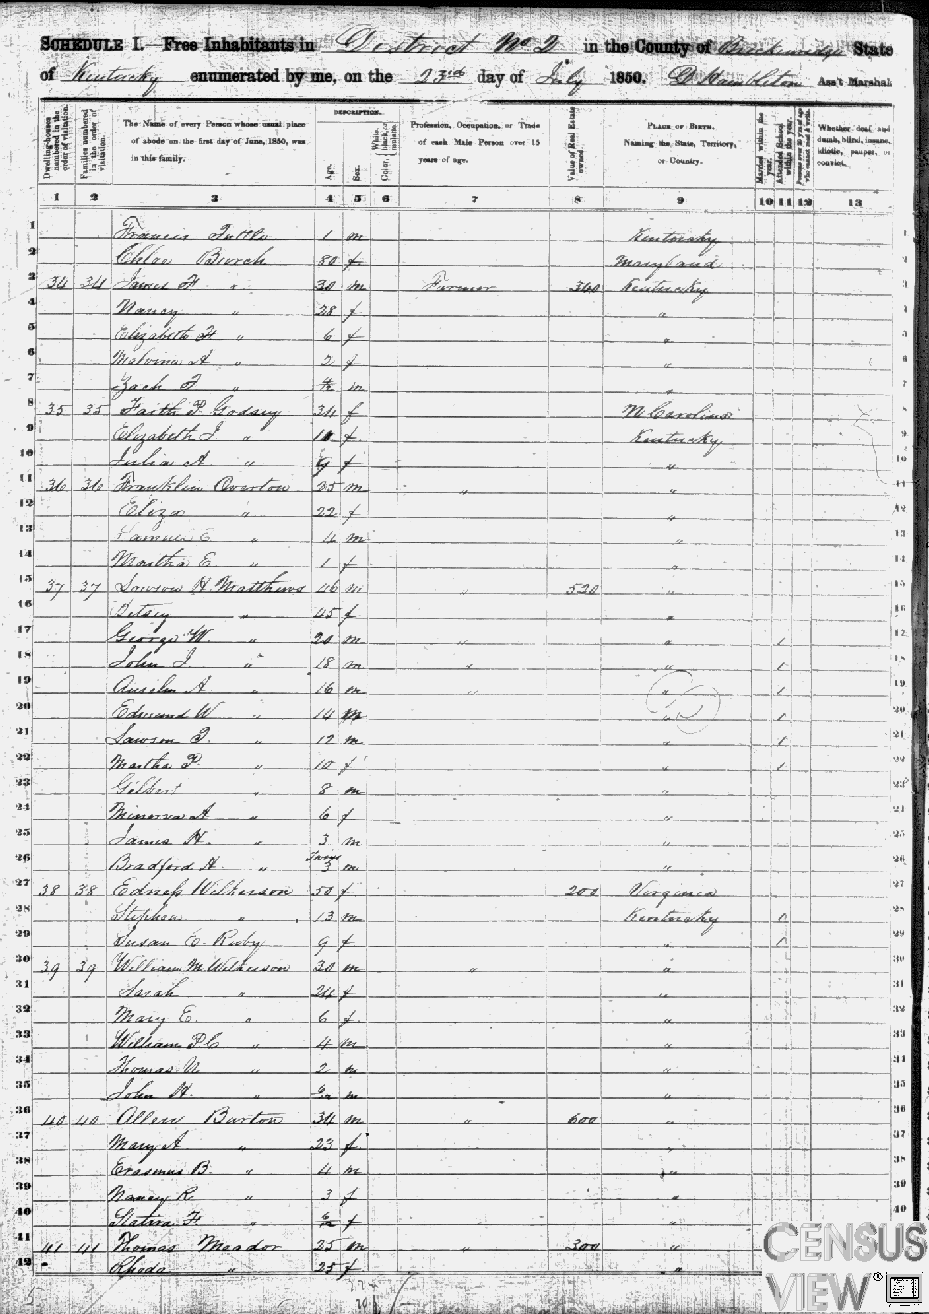 SCHEDULE I.—Free Inhabitants in District No 2 in the County of Breckenridge State
of Kentucky enumerated by me, on the 23rd day of July 1850. Ass't Marshal.
Dwelling-houses numbered in the order of visitation.
Families numbered in the order of visitation.
The Name of every Person whose usual place of abode on the first day of June, 1850, was in this family.
DESCRIPTION.
Age.
Sex.
Color, White, black, or mulatto.
Profession, Occupation, or Trade of each Male Person over 15 years of age.
Value of Real Estate owned.
PLACE OF BIRTH. Naming the State, Territory, or Country.
Married within the year.
Attended School within the year.
Persons over 20 years of age who cannot read & write.
Whether deaf and dumb, blind, insane, idiotic, pauper, or convict.
1 2 3 4 5 6 7 8 9 10 11 12 13
1 Francis Tuttle 1 m Kentucky
2 Chloe Burch 80 f Maryland 2
3 34 34 James H " 30 m Farmer 360 Kentucky 3
4 Nancy " 28 f " 4
5 Elizabeth H " 6 f " 5
6 Malvina A " 2 f " 6
7 Zach T " m " 7
8 35 35 Faith P Godsey 34 f N Carolina 8
9 Elizabeth J " f Kentucky 9
10 Julia A " f " 10
11 36 36 Franklin Overton 25 m " " 11
12 Eliza " 22 f " 12
13 Samuel E " 4 m " 13
14 Martha E " 1 f " 14
15 37 37 Lawson H Matthews 46 m " 520 " 15
16 Betsey " 45 f " 16
17 George W. " 20 m " " 1 17
18 John J " 18 m " " 1 18
19 A " 16 m " " 1 19
20 Edmund W " 14 m " 1 20
21 Lawson " 12 m " 1 21
22 Martha P " 10 f " 1 22
23 Gilbert " 8 m " 23
24 Minerva A " 6 f " 24
25 James H. " 3 m " 25
26 Bradford A. " Twins 3 m " 26
27 38 38 Edness Wilkerson 50 f 200 Virginia 27
28 Stephen " 13 m Kentucky 1 28
29 Susan E. Ruby 9 f " 1 29
30 39 39 William M Wilkerson 30 m " " 30
31 Sarah " 24 f " 31
32 Mary E. " 6 f " 32
33 William P C " 4 m " 33
34 Thomas " 2 m " 34
35 John H. " m " 35
36 40 40 Allen Burton 34 m " 600 " 36
37 Mary A " 23 f " 37
38 Erasmus B. " 4 m " 38
39 Nancy R " 3 f " 39
40 H " f " 40
41 41 41 Thomas Meador 25 m " 300 "
42 Rhoda " 25 f "
CENSUS
VIEW®